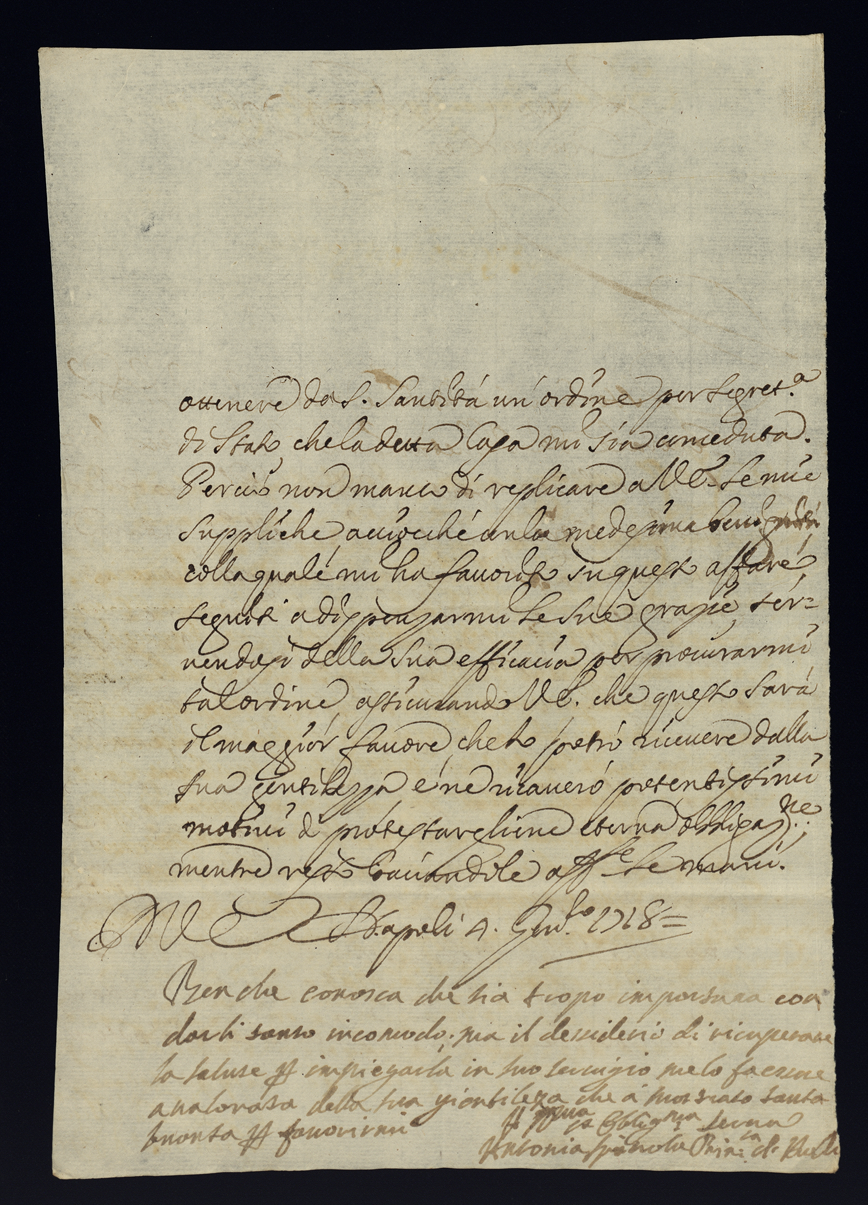 ottenere da S. Santità un'ordine per Segret.ª
di Stato, che la detta Casa mi sia conceduta.
Perciò non manco di replicare a V.E. le mie
suppliche acciocché con la medesima
colla quale mi ha favorito in questo affare,
seguiti a dispenzarmi le sue grazie, ser=
vendosi della sua efficacia per procurarmi
tal ordine, assicurando V.E. che questo sarà
il maggior favore, che potrò ricevere dalla
sua gentilezza e ne ricaverò potentissimi
motivi di protestargliene eterna obbligaz.ne:
mentre resto baciandole aff.te le mani.
Napoli 4. 1718=
Ben che conosca che sia tropo importuna con
darli tanto incomodo, ma il dessiderio di ricuperare
la salute p impiegarla in suo servigio me lo fa
avalorata della sua gientileza che a mostrato tanta
bonta p favorirmi
Serva
Antonia Spinola Prin.sa di